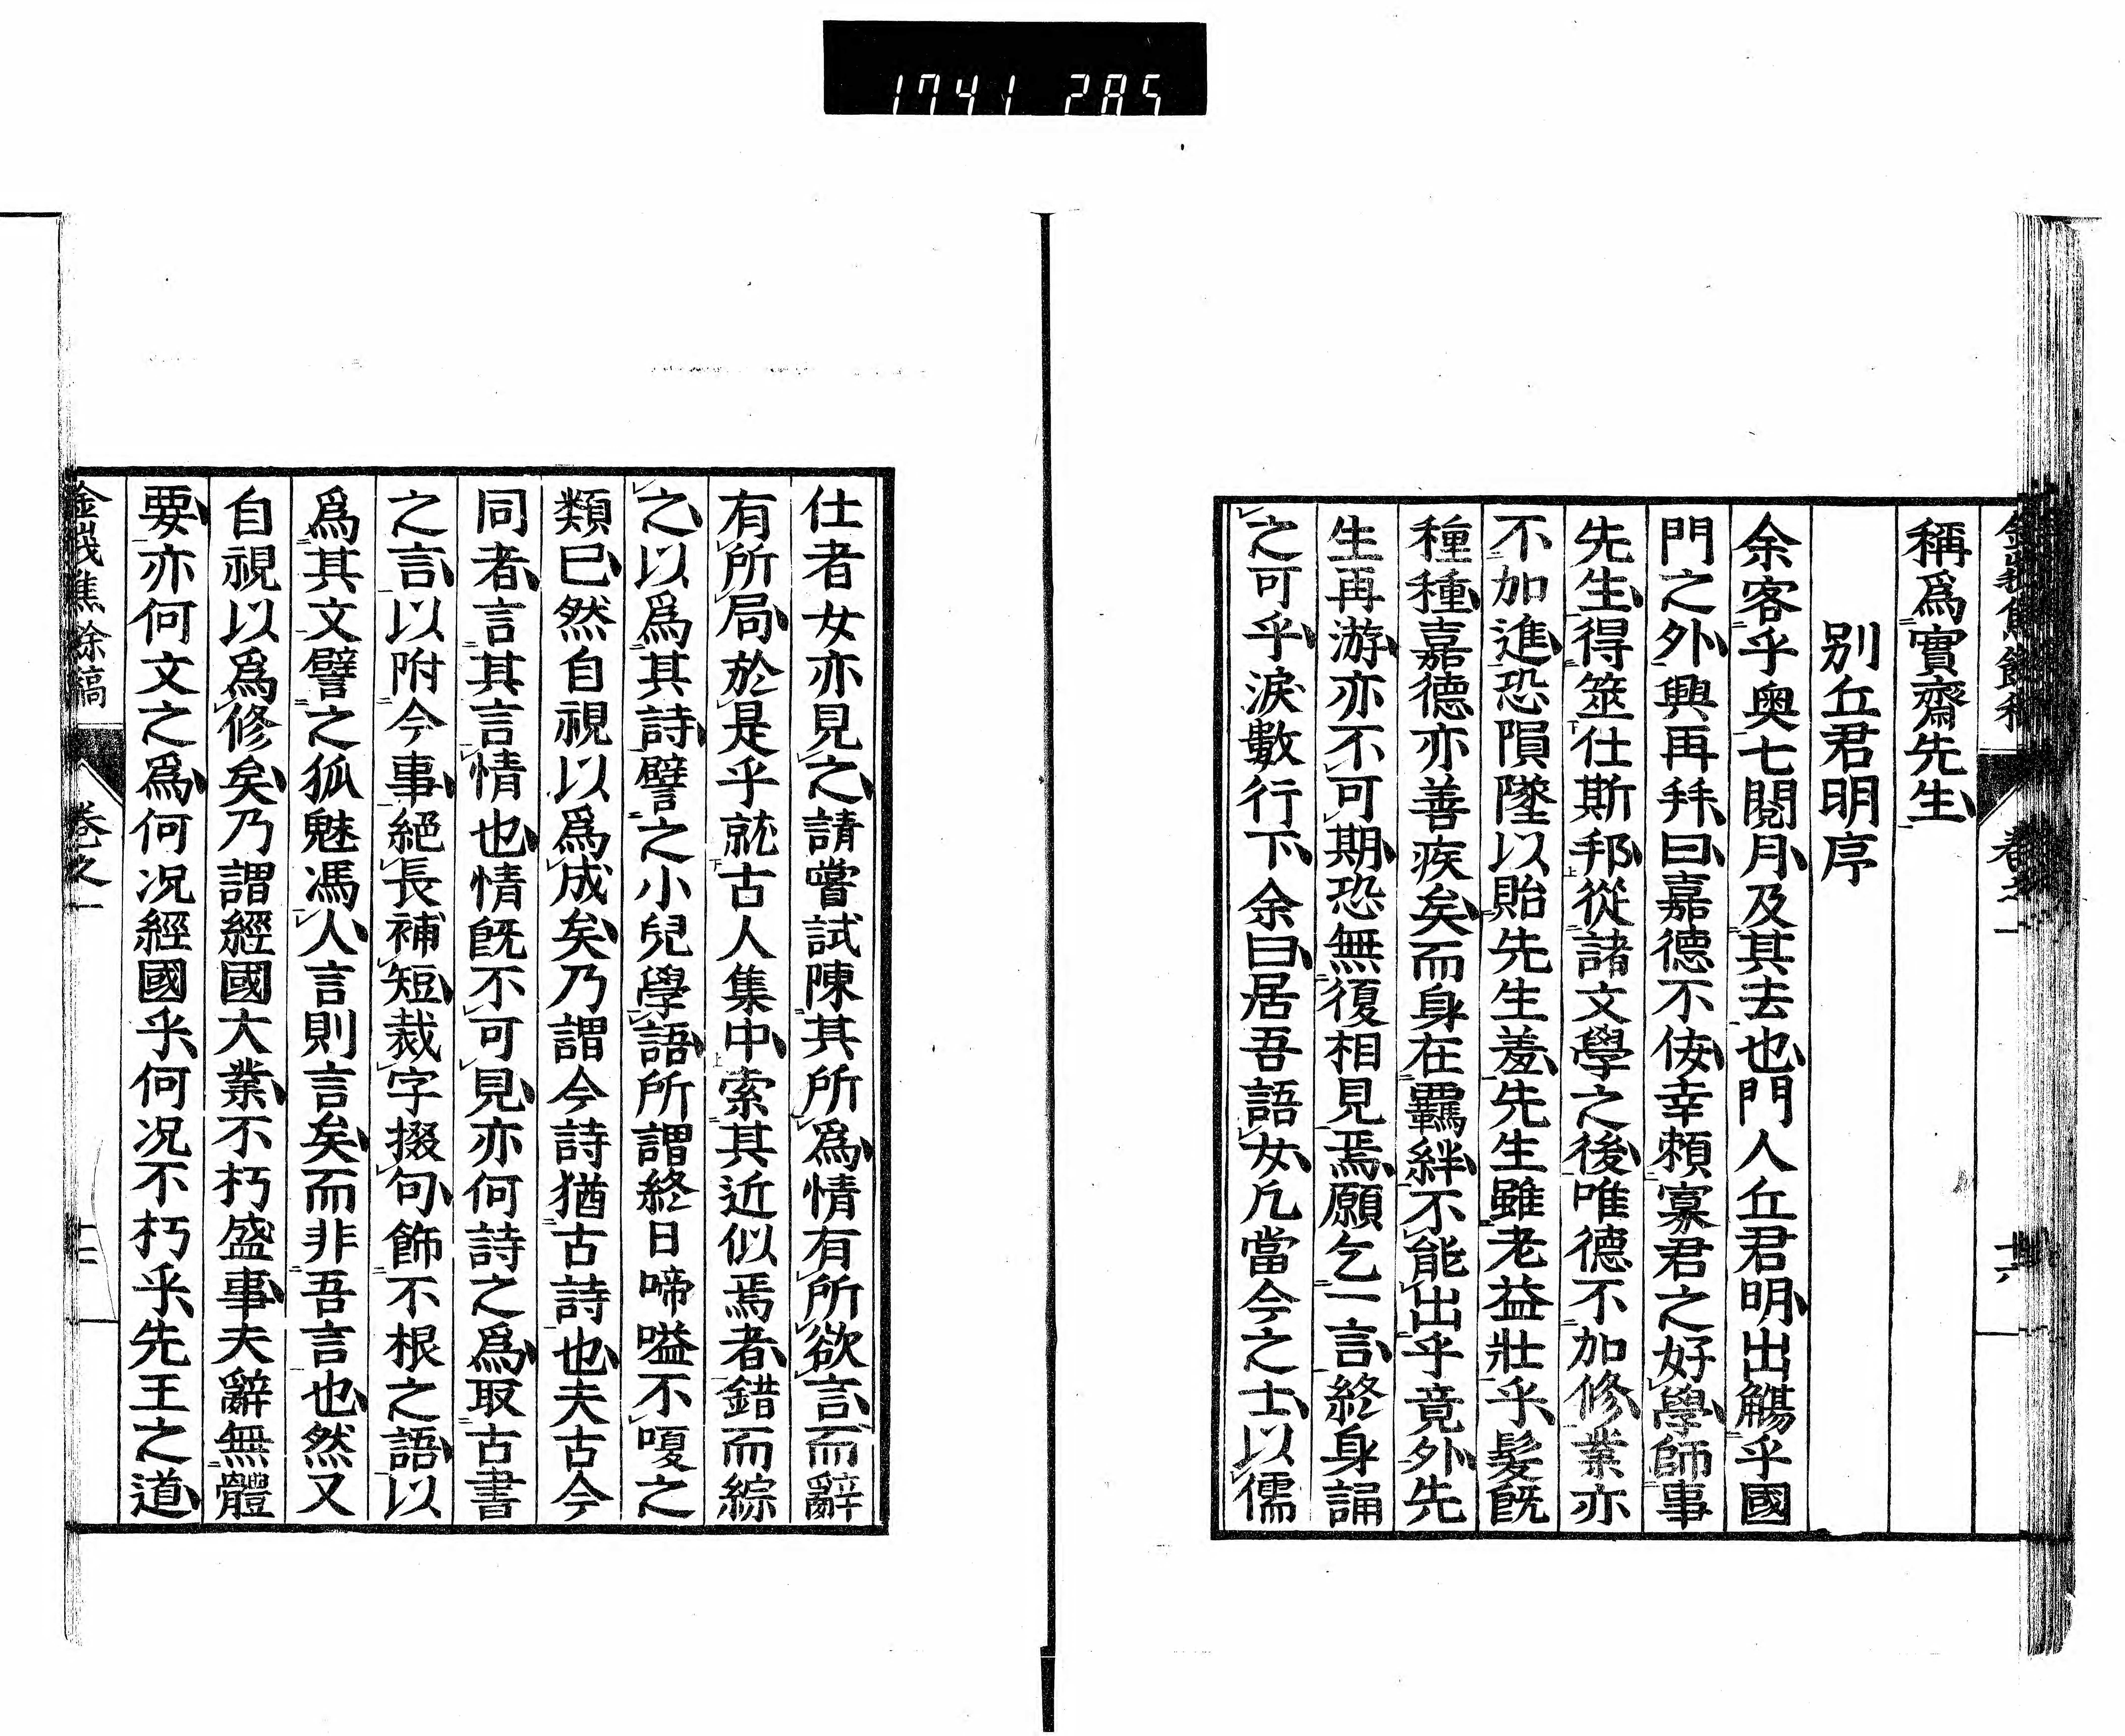 1741 285
稱爲實齋先生
別丘君明序
余客乎奥七閱月及其去也門人丘君明出觴乎國
門之外興再拜曰嘉德不侫幸賴寡君之好學師事
先生得筮仕斯邦從諸文學之後唯德不加修業亦
不加進恐隕墜以貽先生羞先生雖老益壯乎髮既
種種嘉德亦善疾矣而身在羈絆不能出乎竟外先
生再游亦不可期恐無復相見焉願乞一言終身誦
之可乎淚數行下余曰居吾語女凡當今之士以儒
仕者女亦見之請嘗試陳其所爲情有所欲言而辭
有所局於是乎就古人集中索其近似焉者錯而綜
之以爲其詩譬之小兒學語所謂終日啼嗌不嗄之
類已然自視以爲成矣乃謂今詩猶古詩也夫古今
同者言其言情也情既不可見亦何詩之爲取古書
之言以附今事絕長補短裁字掇句飾不根之語以
爲其文譬之狐魅馮人言則言矣而非吾言也然又
自視以爲修矣乃謂經國大業不朽盛事夫辭無體
要亦何文之爲何况經國乎何况不朽乎先王之道
金峩焦餘稿 卷之一 十二